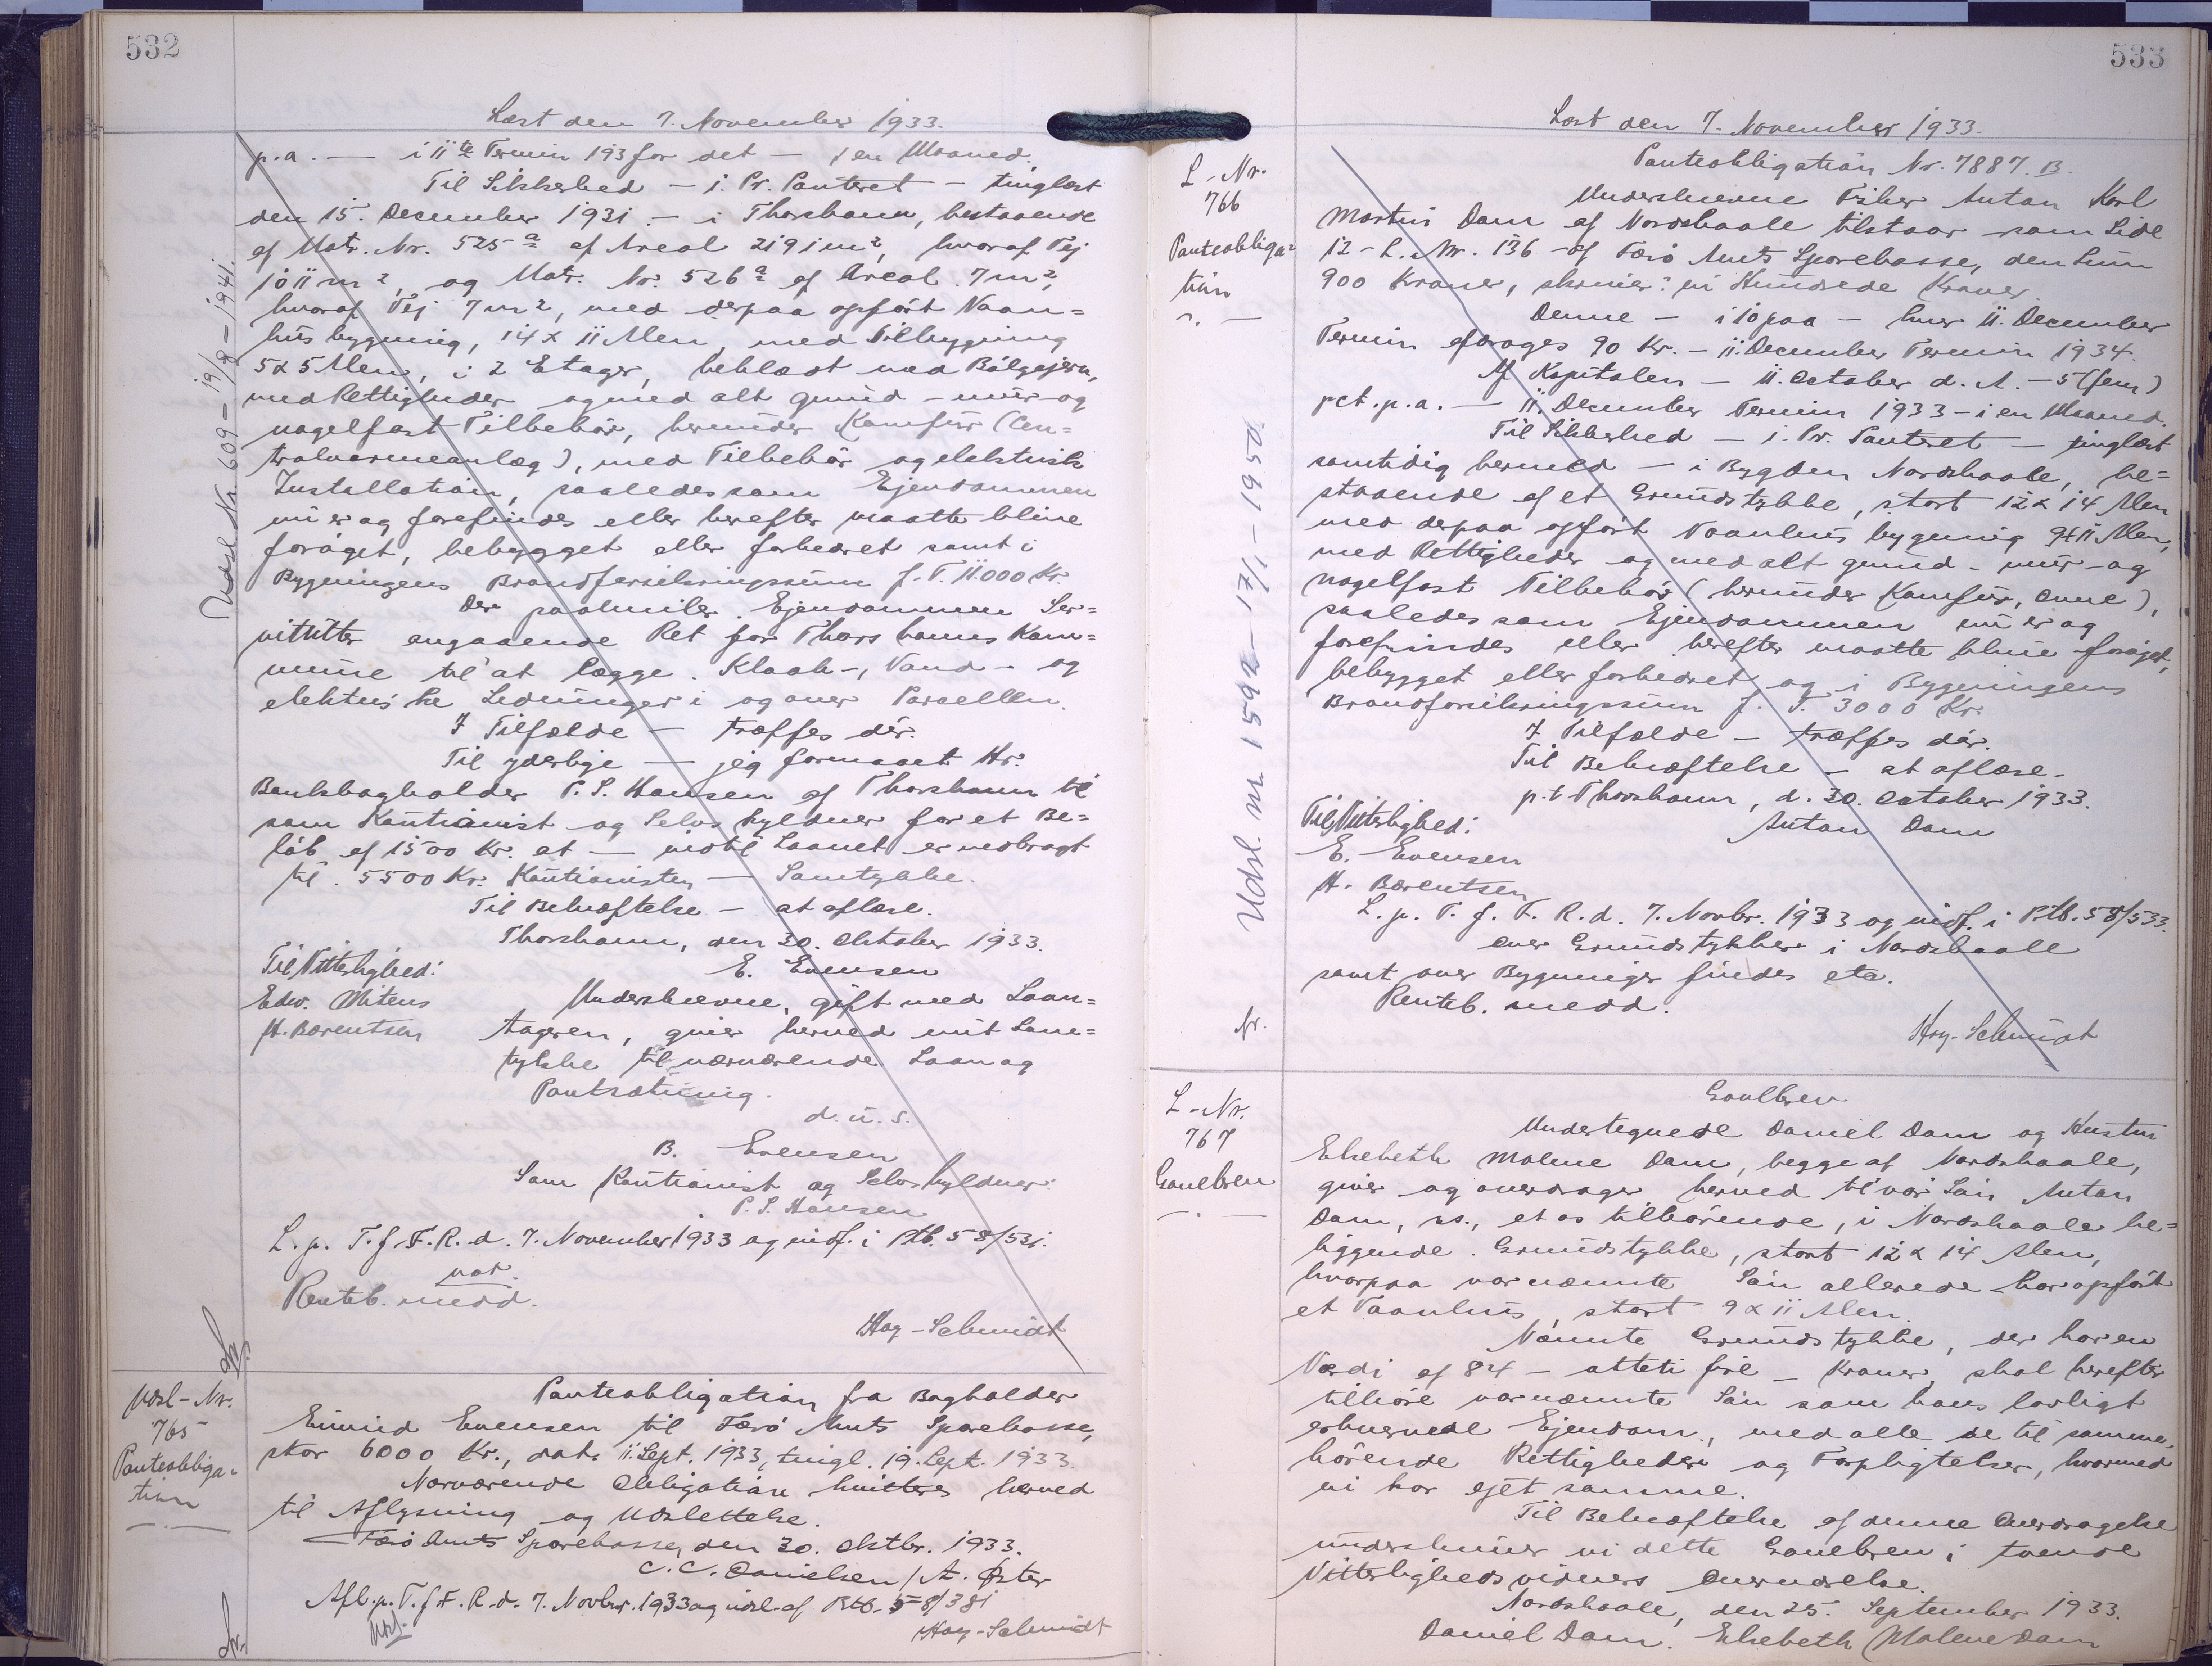 532
Læst den 7. November 1933.
p.a. — i 11te Termin 193 for det — 1 en Maaned.
Til Sikkerhed — 1. Pr. Panteret — tinglæst
den 15. December 1931 — i Thorshavn, bestaaende
af Matr. Nr. 525 a af Areal 2191 m², hvoraf Vej
1011 m², og Matr. Nr. 526 a af Areal 7 m²,
hvoraf Vej 7 m², med derpaa opført Vaan=
husbygning, 14 x 11 Alen, med Tilbygning
5 x 5 Alen, i 2 Etager, beklædt med Bølgejern,
med Rettigheder og med alt grund- mur- og
nagelfast Tilbehør, herunder Komfur (Cen=
tralvarmeanlæg), med Tilbehør og elektrisk
Installation, saaledes som Ejendommen
nu er og forefindes eller herefter maatte blive
forøget, bebygget eller forbedret samt i
Bygningens Brandforsikringssum f. T. 11.000 Kr.
Der paahviler Ejendommen Ser=
vitutter angaaende Ret for Thorshavns Kom=
mune til at lægge Kloak-, Vand- og
elektriske Ledninger i og over Parcellen.
I Tilfælde — træffes dér.
Til yderlige — jeg formaaet Hr.
Bankbogholder P. S. Hansen af Thorshavn til
som Kautionist og Selvskyldner for et Be=
løb af 1500 Kr. at — indtil Laanet er nedbragt
til 5500 Kr. Kautionisten — Samtykke.
Til Bekræftelse — at aflæse.
Thorshavn, den 30. Oktober 1933.
Til Vitterlighed:
E. Evensen
Edw. Mitens
H. Bærentsen
Underskrevne, gift med Laan=
tageren, giver herved mit Sam=
tykke til nærværende Laan og
Pantsætning.
d. u. s.
B. Evensen
Som Kautionist og Selvskyldner:
P. S. Hansen
L. p. T. f. F. R. d. 7. November 1933 og indf. i Ptb. 58/531.
Renteb. medd.
Høy-Schmidt
Udsl Nr. 609 – 19/8 – 1941.
Udsl-Nr.
765
Panteobliga=
tion
Panteobligation fra Bogholder
Eivind Evensen til Færø Amts Sparekasse,
stor 6000 Kr., dat. 11. Sept. 1933, tingl. 19. Sept. 1933.
Nærværende Obligation kvitteres herved
til Aflysning og Udslettelse.
Færø Amts Sparekasse, den 30. Oktbr. 1933.
C. C. Danielsen / A. Øster
Afl. p. T. f. F. R. d. 7. Novbr. 1933 og udsl. af Ptb. 58/381
Udsl.
Høy-Schmidt
533
Læst den 7. November 1933.
L-Nr.
766
Panteobliga=
tion
Panteobligation Nr. 7887. B.
Underskrevne Fisker Anton Karl
Martin Dam af Nordskaale tilstaar som Side
12 – L. Nr. 136 – af Færø Amts Sparekasse, den Sum
900 Kroner, skriver: ni Hundrede Kroner.
Denne — i 10 paa — hver 11. December
Termin afdrages 90 Kr. — 11. December Termin 1934.
Af Kapitalen — 11. October d. A. — 5 (fem)
pct. p.a. — 11. December Termin 1933 – i en Maaned.
Til Sikkerhed — 1. Pr. Panteret — tinglæst
samtidig hermed — i Bygden Nordskaale, be=
staaende af et Grundstykke, stort 12 x 14 Alen
med derpaa opført Vaanhusbygning 9 x 11 Alen,
med Rettigheder og med alt grund- mur- og
nagelfast Tilbehør (herunder Komfur, Ovne),
saaledes som Ejendommen nu er og
forefindes eller herefter maatte blive forøget,
bebygget eller forbedret og i Bygningens
Brandforsikringssum f. T. 3000 Kr.
I Tilfælde — træffes dér.
Til Bekræftelse — at aflæse.
p.t. Thorshavn, d. 30. October 1933.
Til Vitterlighed:
Anton Dam
E. Evensen
H. Bærentsen
L. p. T. f. F. R. d. 7. Novbr. 1933 og indf. i Ptb. 58/533.
over Grundstykker i Nordskaale
samt over Bygninger findes etc.
Renteb. medd.
Høy-Schmidt
Udsl. nr 1592 – 17/1 – 1950.
L-Nr.
767
Gavebrev
Gavebrev
Undertegnede Daniel Dam og Hustru
Elsebeth Malene Dam, begge af Nordskaale,
giver og overdrager herved til vor Søn Anton
Dam, ss., et os tilhørende, i Nordskaale be=
liggende Grundstykke, stort 12 x 14 Alen,
hvorpaa vor nævnte Søn allerede har opført
et Vaanhus, stort 9 x 11 Alen.
Nævnte Grundstykke, der har en
Værdi af 84 – otteti fire – Kroner, skal herefter
tilhøre vor nævnte Søn som hans lovligt
erhvervede Ejendom, med alle de til samme
hørende Rettigheder og Forpligtelser, hvormed
vi har ejet samme.
Til Bekræftelse af denne Overdragelse
underskriver vi dette Gavebrev i tvende
Vitterlighedsvidners Overværelse.
Nordskaale, den 25. September 1933.
Daniel Dam. Elsebeth Malene Dam